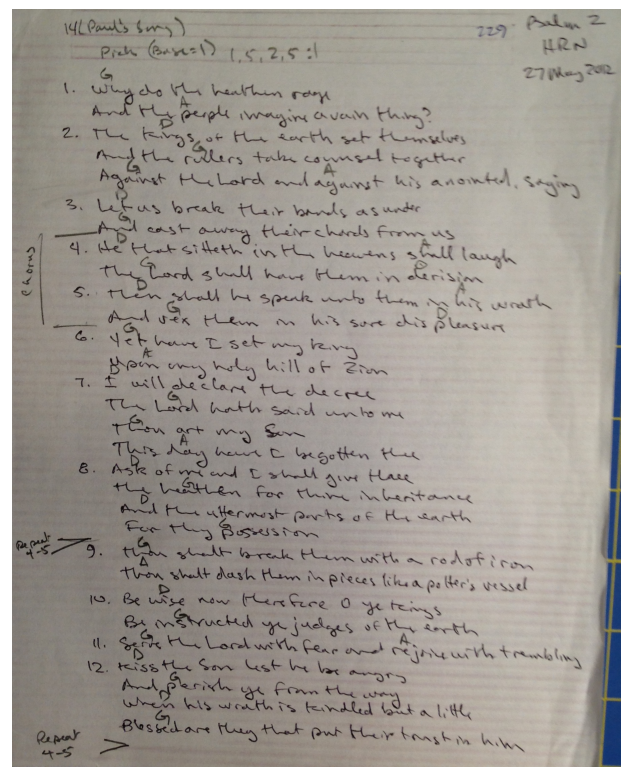 14 (Paul's Song)
229. Psalm 2
Pick (Base=1) 1,5,2,5:1
HRN
27 May 2012
G
1. Why do the heathen rage
A
And the people imagine a vain thing?
D
2. The kings of the earth set themselves
G
And the rulers take counsel together
G A
Against the Lord and against his anointed, saying
D
3. Let us break their bands asunder
G
And cast away their chords from us
D A
4. He that sitteth in the heavens shall laugh
G D
The Lord shall have them in derision
D A
5. Then shall he speak unto them in his wrath
G D
And vex them in his sore displeasure
Chorus
G
6. Yet have I set my king
A
Upon my holy hill of Zion
D
7. I will declare the decree
G
The Lord hath said unto me
G
Thou art my Son
A
This day have I begotten thee
D
8. Ask of me and I shall give thee
G
the heathen for thine inheritance
D
And the uttermost parts of the earth
G
For thy possession
Repeat
4-5
G
9. Thou shalt break them with a rod of iron
A
Thou shalt dash them in pieces like a potter's vessel
D
10. Be wise now therefore O ye kings
G
Be instructed ye judges of the earth
G A
11. Serve the Lord with fear and rejoice with trembling
D
12. Kiss the Son lest he be angry
G
And perish ye from the way
D
When his wrath is kindled but a little
G
Blessed are they that put their trust in him
Repeat
4-5